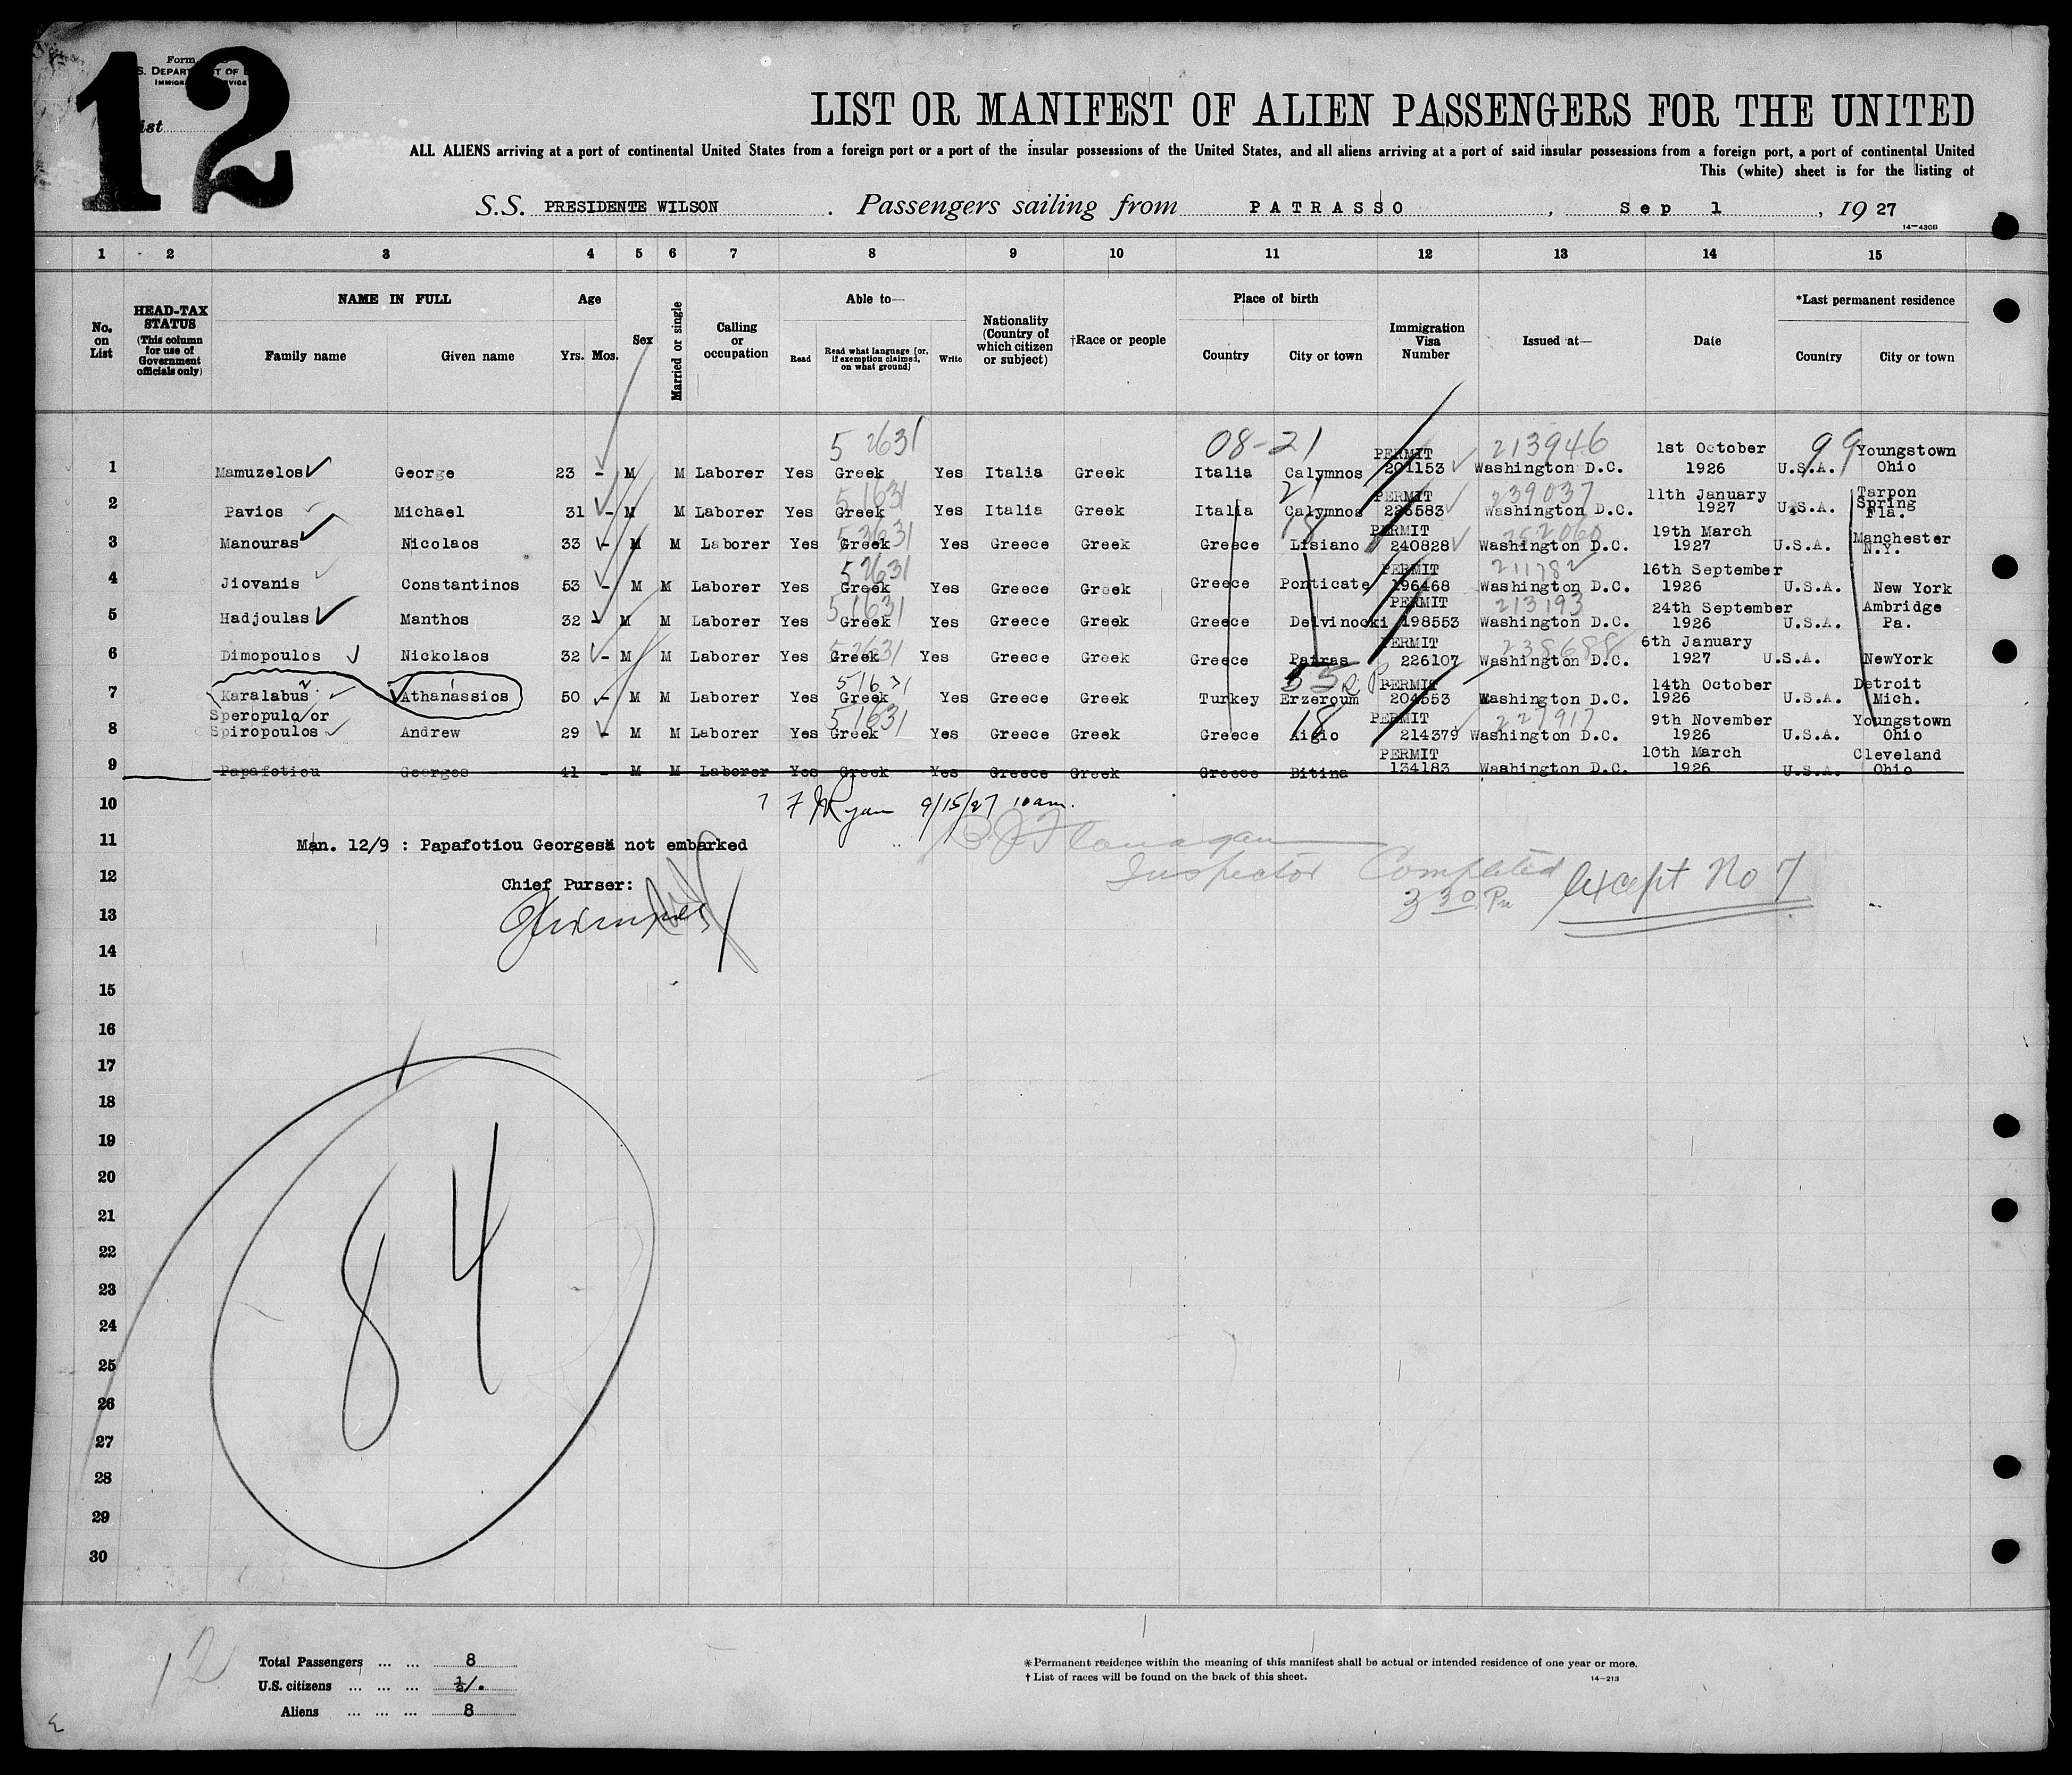 12
Form
S. DEPARTMENT OF L
IMMIGR SERVICE
ist
LIST OR MANIFEST OF ALIEN PASSENGERS FOR THE UNITED
ALL ALIENS arriving at a port of continental United States from a foreign port or a port of the insular possessions of the United States, and all aliens arriving at a port of said insular possessions from a foreign port, a port of continental United
This (white) sheet is for the listing of
S.S. PRESIDENTE WILSON . Passengers sailing from PATRASSO , Sep 1 , 19 27
14-430B
1 2 3 4 5 6 7 8 9 10 11 12 13 14 15
No. on List
HEAD-TAX STATUS (This column for use of Government officials only)
NAME IN FULL
Family name Given name
Age
Yrs. Mos.
Sex
Married or single
Calling or occupation
Able to—
Read Read what language [or, if exemption claimed, on what ground] Write
Nationality (Country of which citizen or subject)
†Race or people
Place of birth
Country City or town
Immigration Visa Number
Issued at—
Date
*Last permanent residence
Country City or town
5 2631 08-21 213946 99
1 Mamuzelos George 23 - M M Laborer Yes Greek Yes Italia Greek Italia Calymnos PERMIT 201153 Washington D.C. 1st October 1926 U.S.A. Youngstown Ohio
5 1631 21 239037
2 Pavios Michael 31 - M M Laborer Yes Greek Yes Italia Greek Italia Calymnos PERMIT 223583 Washington D.C. 11th January 1927 U.S.A. Tarpon Spring Fla.
5 2631 18 252060
3 Manouras Nicolaos 33 - M M Laborer Yes Greek Yes Greece Greek Greece Lisiano PERMIT 240828 Washington D.C. 19th March 1927 U.S.A. Manchester N.Y.
5 2631 211782
4 Jiovanis Constantinos 53 - M M Laborer Yes Greek Yes Greece Greek Greece Ponticate PERMIT 196468 Washington D.C. 16th September 1926 U.S.A. New York
5 1631 213193
5 Hadjoulas Manthos 32 - M M Laborer Yes Greek Yes Greece Greek Greece Delvinocki PERMIT 198553 Washington D.C. 24th September 1926 U.S.A. Ambridge Pa.
5 2631 238688
6 Dimopoulos Nickolaos 32 - M M Laborer Yes Greek Yes Greece Greek Greece Patras PERMIT 226107 Washington D.C. 6th January 1927 U.S.A. NewYork
51631 53 R P
7 Karalabus Athanassios 50 - M M Laborer Yes Greek Yes Greece Greek Turkey Erzeroum PERMIT 204553 Washington D.C. 14th October 1926 U.S.A. Detroit Mich.
5 1631 18 227917
8 Speropulo or Spiropoulos Andrew 29 - M M Laborer Yes Greek Yes Greece Greek Greece Aigio PERMIT 214379 Washington D.C. 9th November 1926 U.S.A. Youngstown Ohio
9 Papafotiou Georges 41 - M M Laborer Yes Greek Yes Greece Greek Greece Bitina PERMIT 134183 Washington D.C. 10th March 1926 U.S.A. Cleveland Ohio
10
7 F J Ryan 9/15/27 10 am.
11 Man. 12/9 : Papafotiou Georges not embarked
Flanagan
12 Chief Purser:
Inspector Completed except No 7
3 30 Pm
13
14
15
16
17
18
19
20
21
22
23
24
25
26
27
28
29
30
84
12
Total Passengers ... ... 8
U.S. citizens ... ... ... /.
Aliens ... ... ... 8
* Permanent residence within the meaning of this manifest shall be actual or intended residence of one year or more.
† List of races will be found on the back of this sheet. 14-213